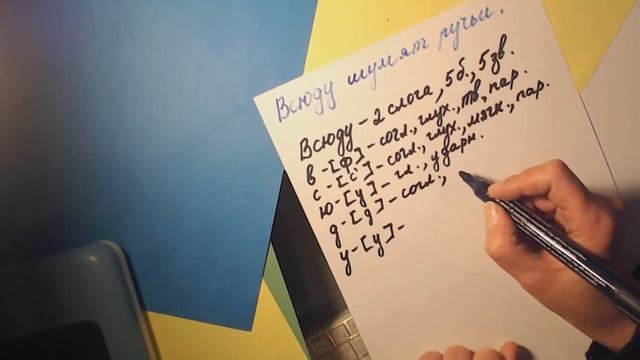 Всюду шумят ручьи.
Всюду - 2 слога, 5б., 5 зв.
в - [ф] - согл., глух., тв., пар.
с - [с'] - согл., глух., мягк., пар.
ю - [у] - гл., ударн.
д - [д] - согл.,
у - [у] -